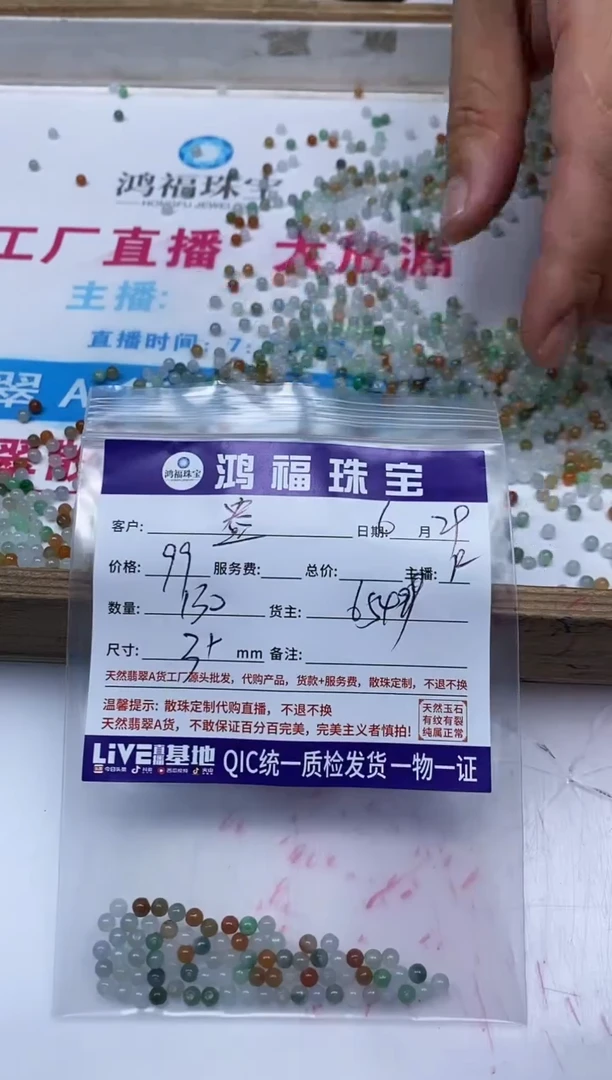 鸿福珠宝
HONGFU JEWELRY
工厂直播 大放漏
主播:
直播时间: 7:
翠 A
鸿福珠宝 鸿福珠宝
客户: 日期: 6 月 29
价格: 99 服务费: 总价: 主播:
数量: 130 货主:
尺寸: 3+ mm 备注:
天然翡翠A货工厂源头批发,代购产品,货款+服务费,散珠定制,不退不换
温馨提示: 散珠定制代购直播,不退不换
天然翡翠A货,不敢保证百分百完美,完美主义者慎拍!
天然玉石
有纹有裂
纯属正常
LIVE直播基地 QIC统一质检发货 一物一证
今日头条 抖音 西瓜视频